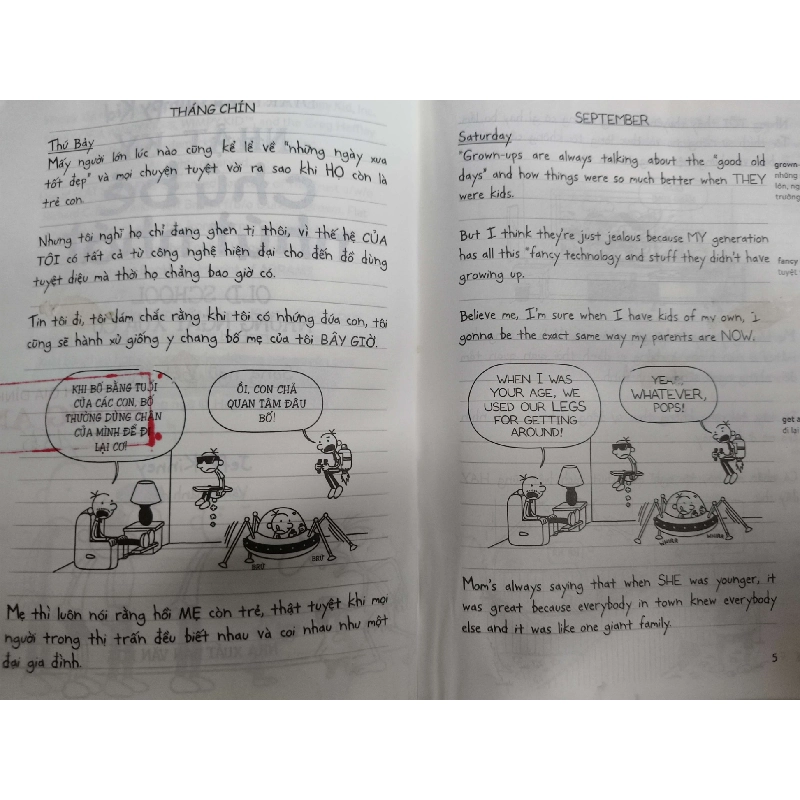 THÁNG CHÍN
Thứ Bảy
Mấy người lớn lúc nào cũng kể lể về "những ngày xưa
tốt đẹp" và mọi chuyện tuyệt vời ra sao khi HỌ còn là
trẻ con.
Nhưng tôi nghĩ họ chỉ đang ghen tị thôi, vì thế hệ CỦA
TÔI có tất cả từ công nghệ hiện đại cho đến đồ dùng
tuyệt diệu mà thời họ chẳng bao giờ có.
Tin tôi đi, tôi dám chắc rằng khi tôi có những đứa con, tôi
cũng sẽ hành xử giống y chang bố mẹ của tôi BÂY GIỜ.
KHI BỐ BẰNG TUỔI
CỦA CÁC CON, BỐ
THƯỜNG DÙNG CHÂN
CỦA MÌNH ĐỂ ĐI
LẠI CƠ!
ÔI, CON CHẢ
QUAN TÂM ĐÂU
BỐ!
BRỪ
BRỪ
Mẹ thì luôn nói rằng hồi MẸ còn trẻ, thật tuyệt khi mọi
người trong thị trấn đều biết nhau và coi nhau như một
đại gia đình.
SEPTEMBER
Saturday
"Grown-ups are always talking about the "good old
days" and how things were so much better when THEY
were kids.
But I think they're just jealous because MY generation
has all this "fancy technology and stuff they didn't have
growing up.
Believe me, I'm sure when I have kids of my own, I
gonna be the exact same way my parents are NOW.
WHEN I WAS
YOUR AGE, WE
USED OUR LEGS
FOR GETTING
AROUND!
YEAH,
WHATEVER,
POPS!
WHIRR
WHIRR
Mom's always saying that when SHE was younger, it
was great because everybody in town knew everybody
else and it was like one giant family.
5
grown
những
lớn, ng
trưởng
fancy
tuyệt
get a
đi lại